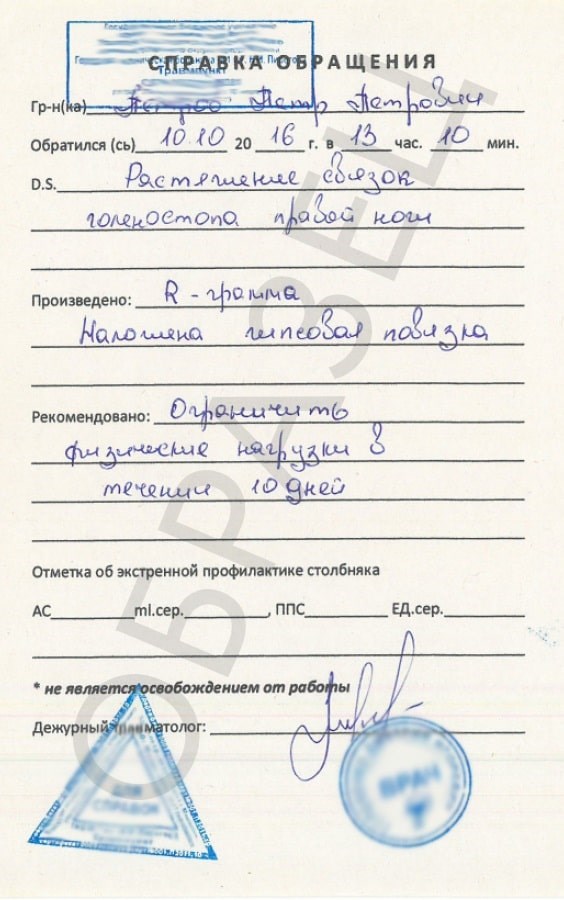 СПРАВКА ОБРАЩЕНИЯ
Травмпункт
Гр-н(ка) Петров Петр Петрович
Обратился (сь) 10.10 20 16 г. в 13 час. 10 мин.
D.S. Растяжение связок
голеностопа правой ноги
Произведено: R - грамма
Наложена гипсовая повязка
Рекомендовано: Ограничить
физические нагрузки в
течении 10 дней
Отметка об экстренной профилактике столбняка
АС ml.сер. , ППС ЕД.сер.
* не является освобождением от работы
Дежурный травматолог:
ДЛЯ
СПРАВОК
ВРАЧ
ОБРАЗЕЦ